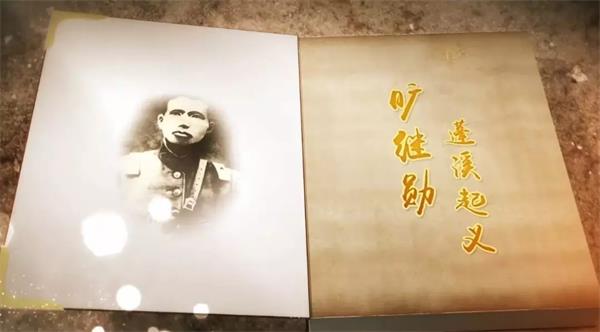 旷继勋
蓬溪起义